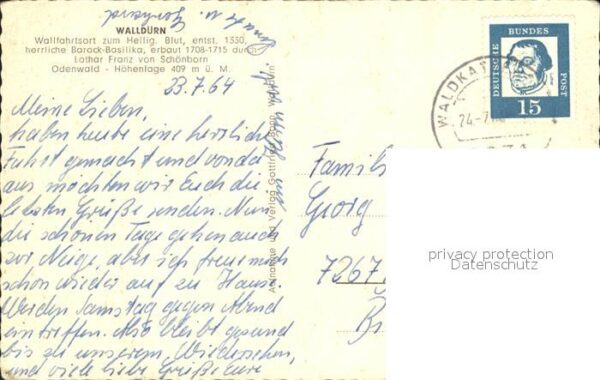 WALLDÜRN
Wallfahrtsort zum Heilig. Blut, entst. 1330,
herrliche Barock-Basilika, erbaut 1708-1715 durch
Lothar Franz von Schönborn
Odenwald - Höhenlage 409 m ü. M.
23.7.64
Meine Lieben,
haben heute eine herrliche
Fahrt gemacht und von da
aus möchten wir Euch die
letzten Grüße senden. Nun
die schönen Tage gehen auch
zur Neige, aber ich freue mich
schon wieder auf zu Hause.
Werden Samstag gegen Abend
eintreffen. Also bleibt gesund
bis zu unserem Wiedersehen,
und viele liebe Grüße Eure
u.
Aufnahme und Verlag Gottfried
DEUTSCHE
BUNDES
POST
15
24.-7.
Famil
Georg
7267
B
privacy protection
Datenschutz